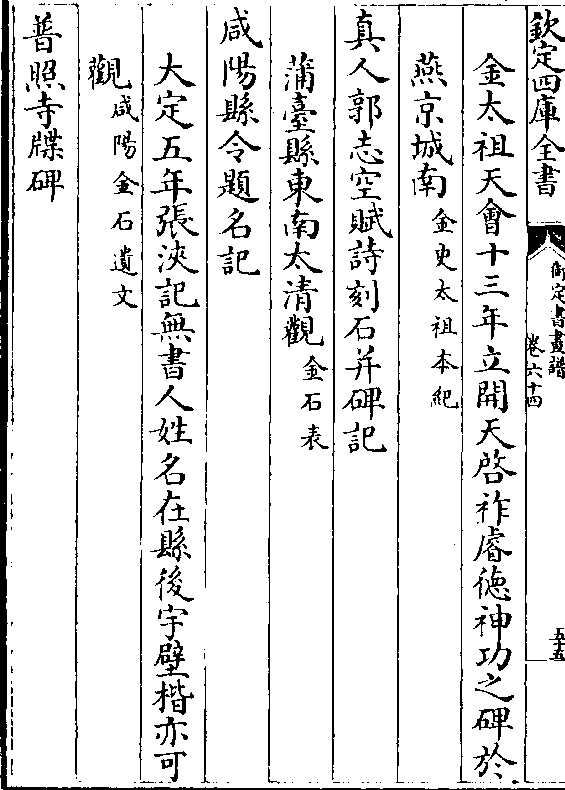 欽定四庫全書
御定書畫譜
卷六十四
五十五
金太祖天會十三年立開天啓祚睿徳神功之碑於
燕京城南金史太祖本紀
真人郭志空賦詩刻石并碑記
蒲臺縣東南太清觀金石表
咸陽縣令題名記
大定五年張浹記無書人姓名在縣後宇壁楷亦可
觀咸陽金石遺文
普照寺牒碑